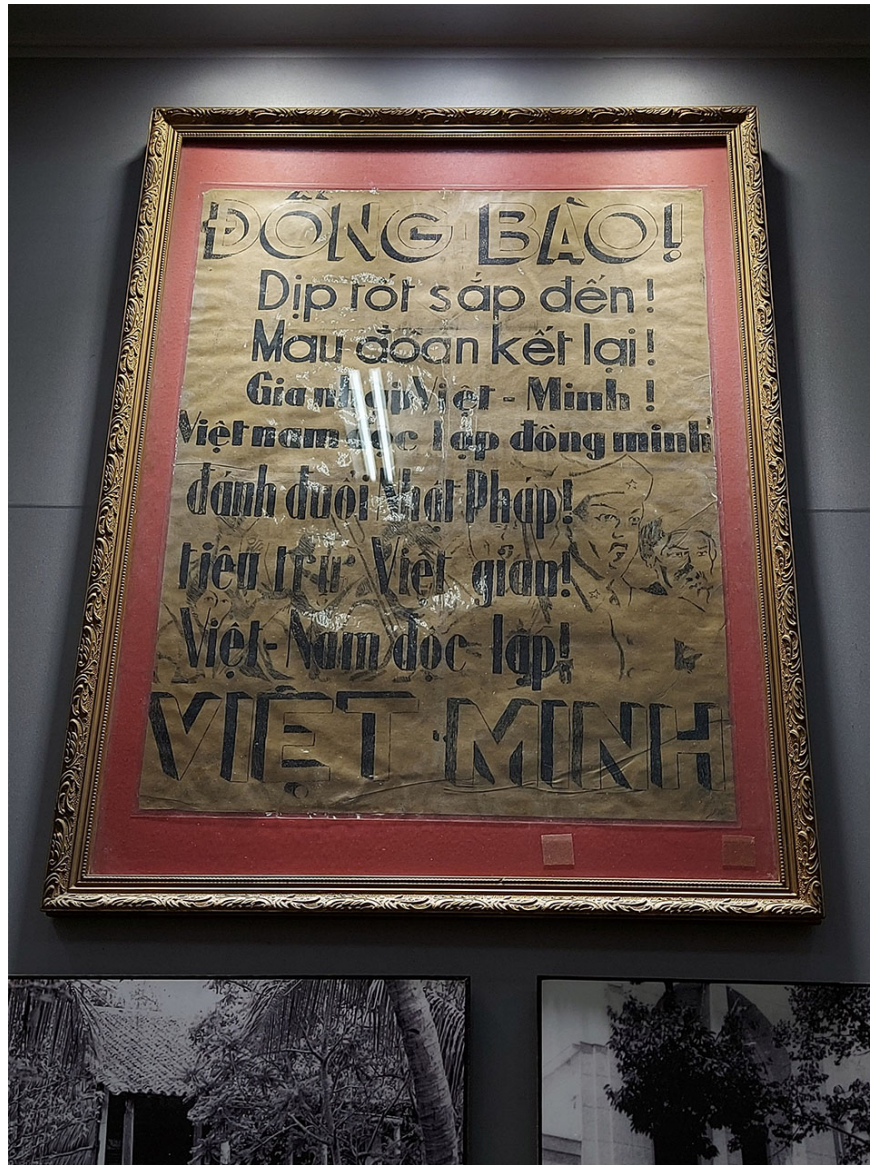 ĐỒNG BÀO!
Dịp tốt sắp đến!
Mau đoàn kết lại!
Gia nhập Việt - Minh!
Việt nam độc lập đồng minh
đánh đuổi Nhật Pháp!
tiêu trừ Việt gian!
Việt-Nam độc lập!
VIỆT MINH